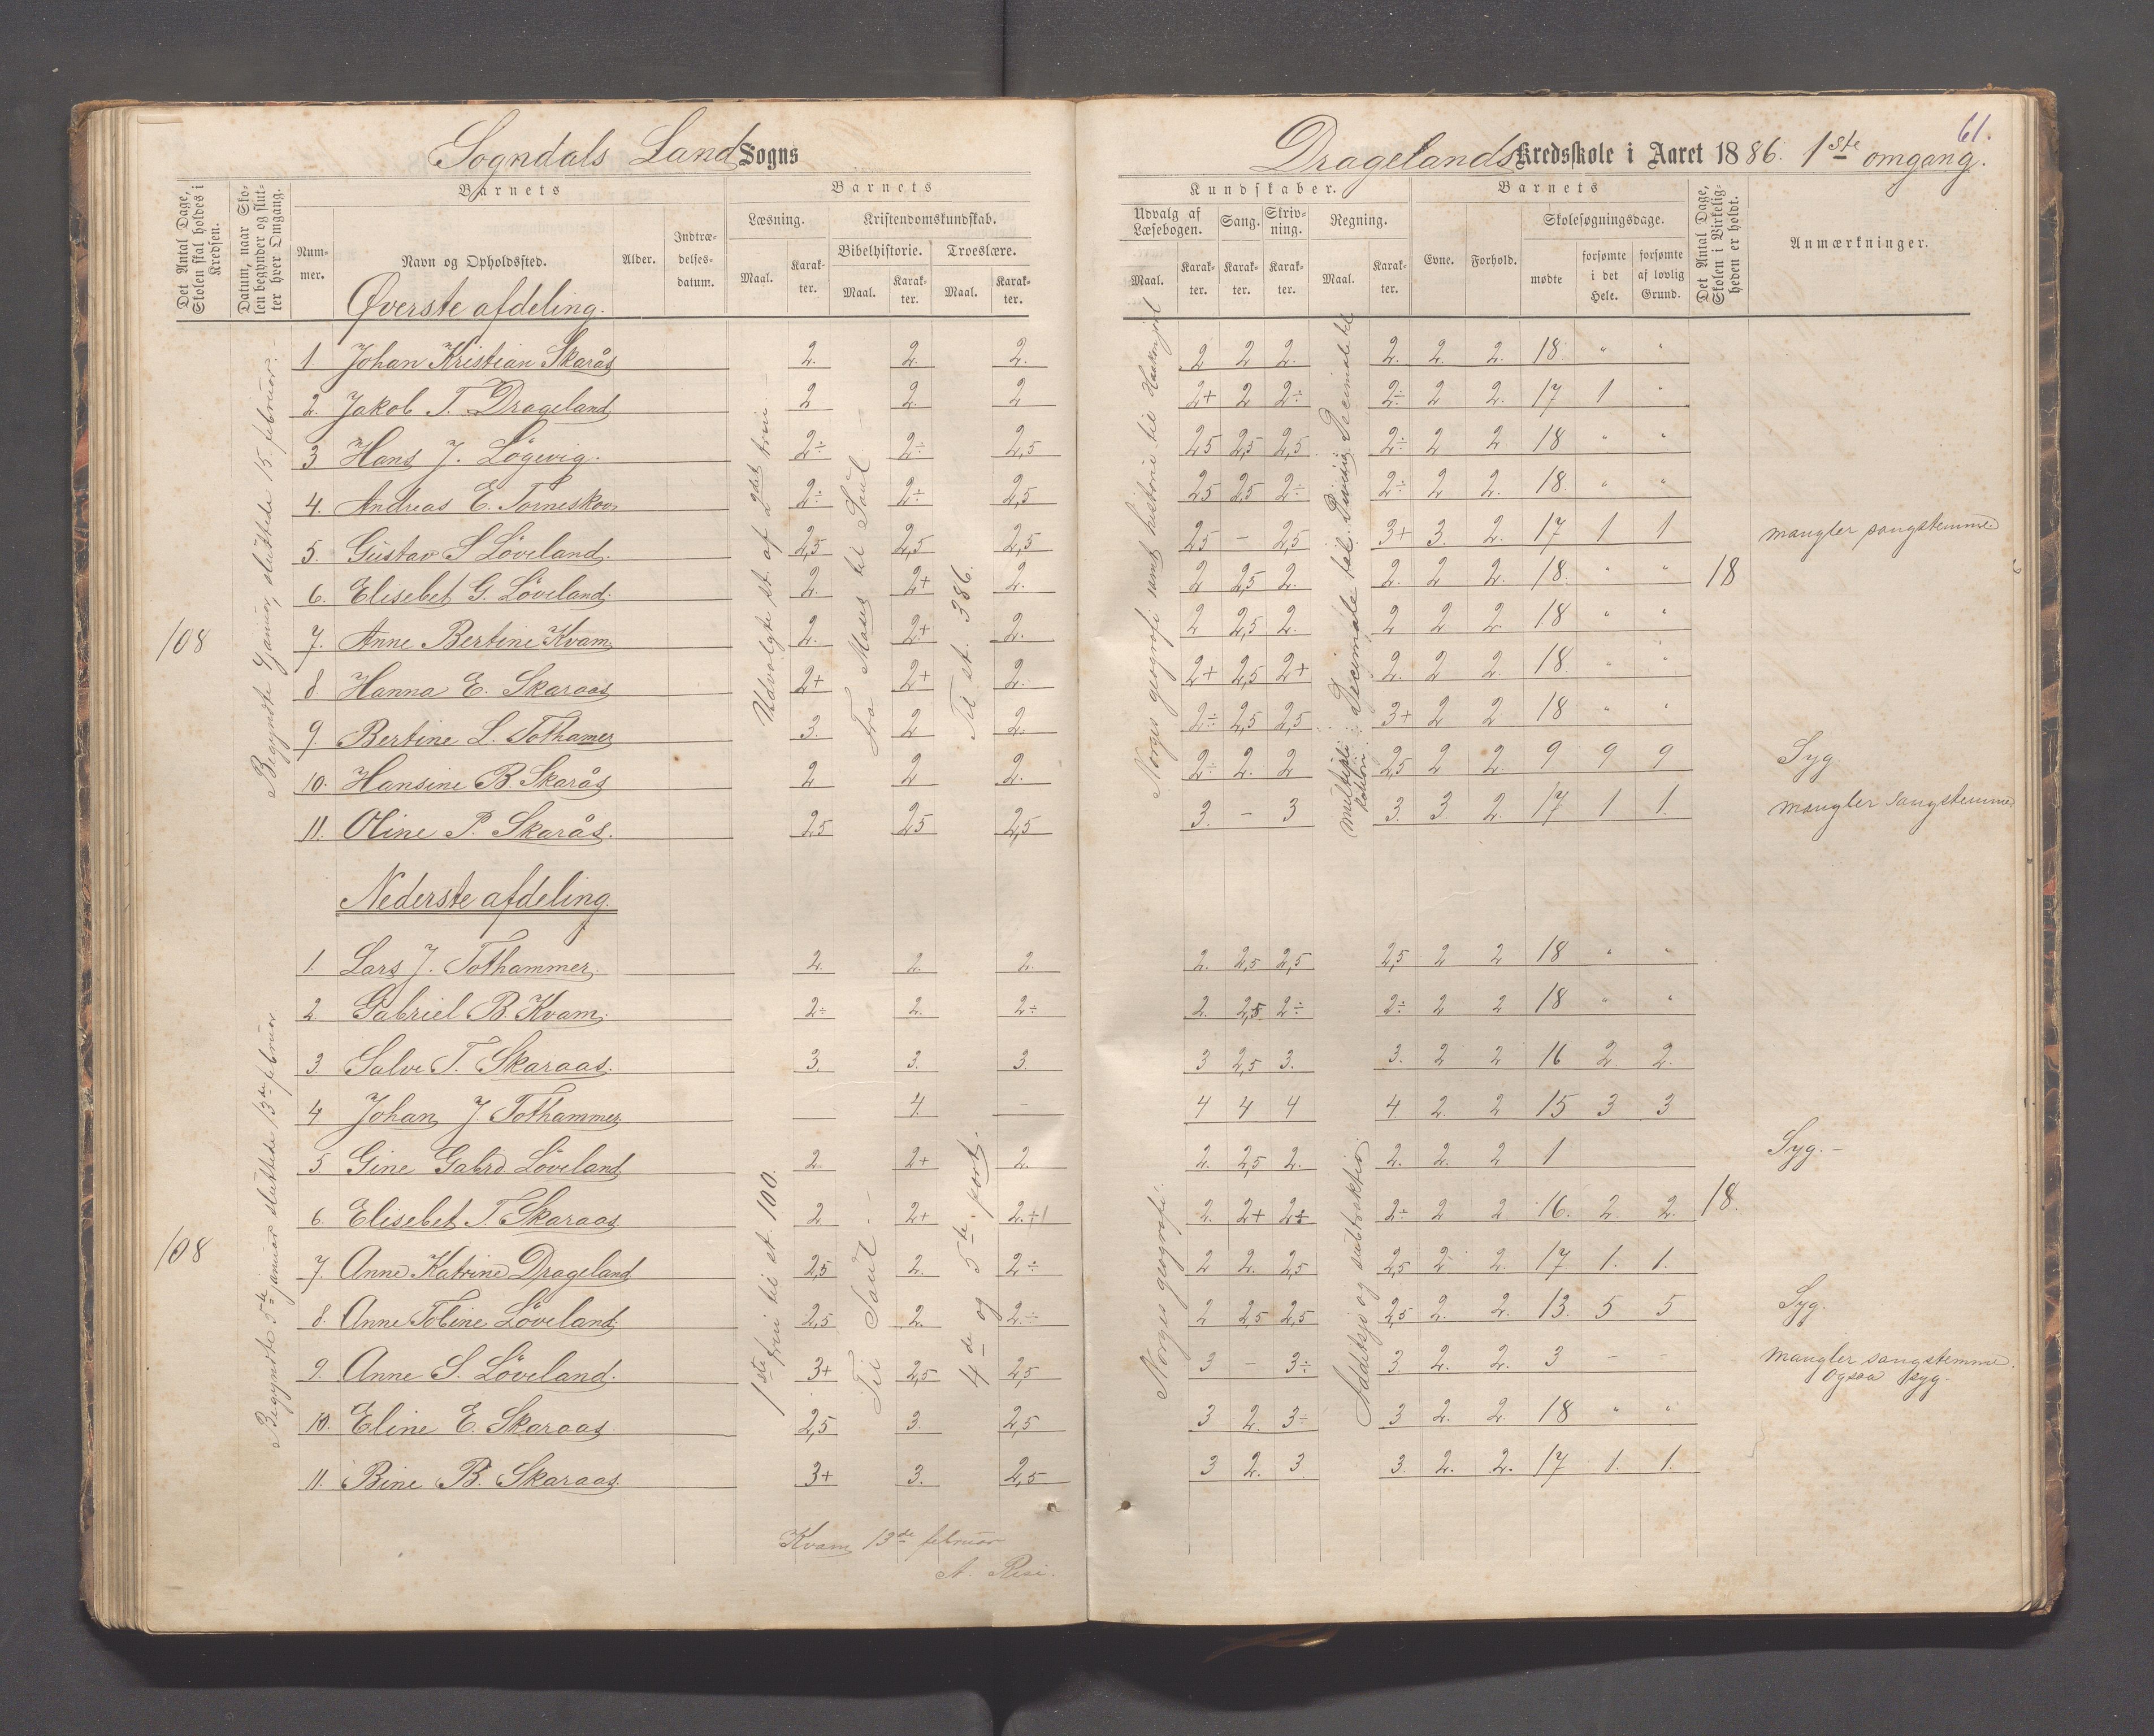 Sogndals Land Sogns
Dragelands Kredsskole i Aaret 1886. 1ste omgang.
61.
Det Antal Dage, Skolen skal holdes i Kredsen.
Datum, naar Skolen begynder og slutter hver Omgang.
Barnets
Nummer.
Navn og Opholdssted.
Alder.
Indtrædelsesdatum.
Barnets
Læsning.
Kristendomskundskab.
Bibelhistorie.
Troeslære.
Maal.
Karakter.
Maal.
Karakter.
Maal.
Karakter.
Kundskaber.
Udvalg af Læsebogen.
Sang.
Skrivning.
Regning.
Maal.
Karakter.
Karakter.
Karakter.
Maal.
Karakter.
Barnets
Evne.
Forhold.
Skolesøgningsdage.
mødte
forsømte i det Hele.
forsømte af lovlig Grund.
Det Antal Dage, Skolen i Virkeligheden er holdt.
Anmærkninger.
Øverste afdeling.
1. Johan Kristian Skarås 2. 2. 2. 2 2 2. 2. 2. 2. 18. " "
2. Jakob T. Drageland 2 2. 2 2+ 2 2÷ 2÷ 2 2. 17 1 "
3 Hans J. Lögevig. 2÷ 2÷ 2,5 25 2,5 2,5 2÷ 2 2 18 " "
4. Andreas E. Torneskov 2÷ 2÷ 2,5 25 25 2÷ 2÷ 2 2. 18. " "
5. Gustav S Löveland. 2,5 2,5 2,5 25 – 2,5 3+ 3. 2. 17 1 1 mangler sangstemme
6. Elisebet G. Löveland. 2. 2+ 2. 2 2,5 2. 2. 2 2. 18. " " 18
7. Anne Bertine Kvam 2. 2+ 2. 2 2,5 2. 2 2 2. 18 " "
8. Hanna E. Skaraas 2+ 2+ 2. 2+ 2,5 2+ 2. 2 2. 18. " "
9. Bertine L. Tothamer 3. 2 2. 2÷ 2,5 2,5 3+ 2 2 18 " "
10. Hansine B. Skarås 2 2 2. 2÷ 2. 2 2,5 2 2. 9 9 9 Syg
11. Oline P. Skarås. 2,5 25 2,5 3. – 3 3. 3. 2. 17 1 1. mangler sangstemme
108
Begyndte januar, sluttede 15. februar. –
Udvalgte st. af 2det trin. –
Fra Moses til Saul –
Til st. 386.
Norges geografi samt historie til
multipli
Nederste afdeling.
1. Lars J. Tothammer. 2. 2. 2. 2. 2,5 2,5 2,5 2 2 18 " "
2 Gabriel B. Kvam. 2÷ 2. 2÷ 2. 2,5 2÷ 2÷ 2 2 18 " "
3. Salve T. Skaraas. 3. 3. 3. 3 2,5 3. 3. 2 2 16 2 2.
4 Johan J. Tothammer 4. – 4 4 4 4 2. 2 15 3 3
5. Gine Gabrd. Löveland 2. 2+ 2. 2. 2,5 2. 2. 2. 2 1 Syg. –
6. Elisebet T. Skaraas 2 2+ 2. 2+ 2÷ 2÷ 2 2 16. 2. 2. 18.
7. Anne Katrine Drageland 2,5 2. 2÷ 2 2. 2,5 2,5 2 2. 17 1. 1.
8. Anne Tobine Löveland 2,5 2. 2÷ 2 2,5 2,5 2,5 2. 2. 13. 5 5 Syg.
9. Anne S. Löveland. 3+ 2,5 2,5 3 – 3÷ 3. 2. 2. 3 – – Mangler sangstemme.
Ogsaa syg –
10. Eline E. Skaraas 2,5 3. 2,5 3 2. 3÷ 3 2. 2. 18 " "
11. Bine B. Skaraas. 3+ 3. 2,5 3 2. 3 3. 2. 2. 17 1. 1.
108
Begyndte 5te januar sluttede 13de februar
1ste trin til st. 100.
Til Saul –
4de og 5te part.
Norges geografi.
Addetsjo og subtraktio
Kvam 13de februar
A. Risi.